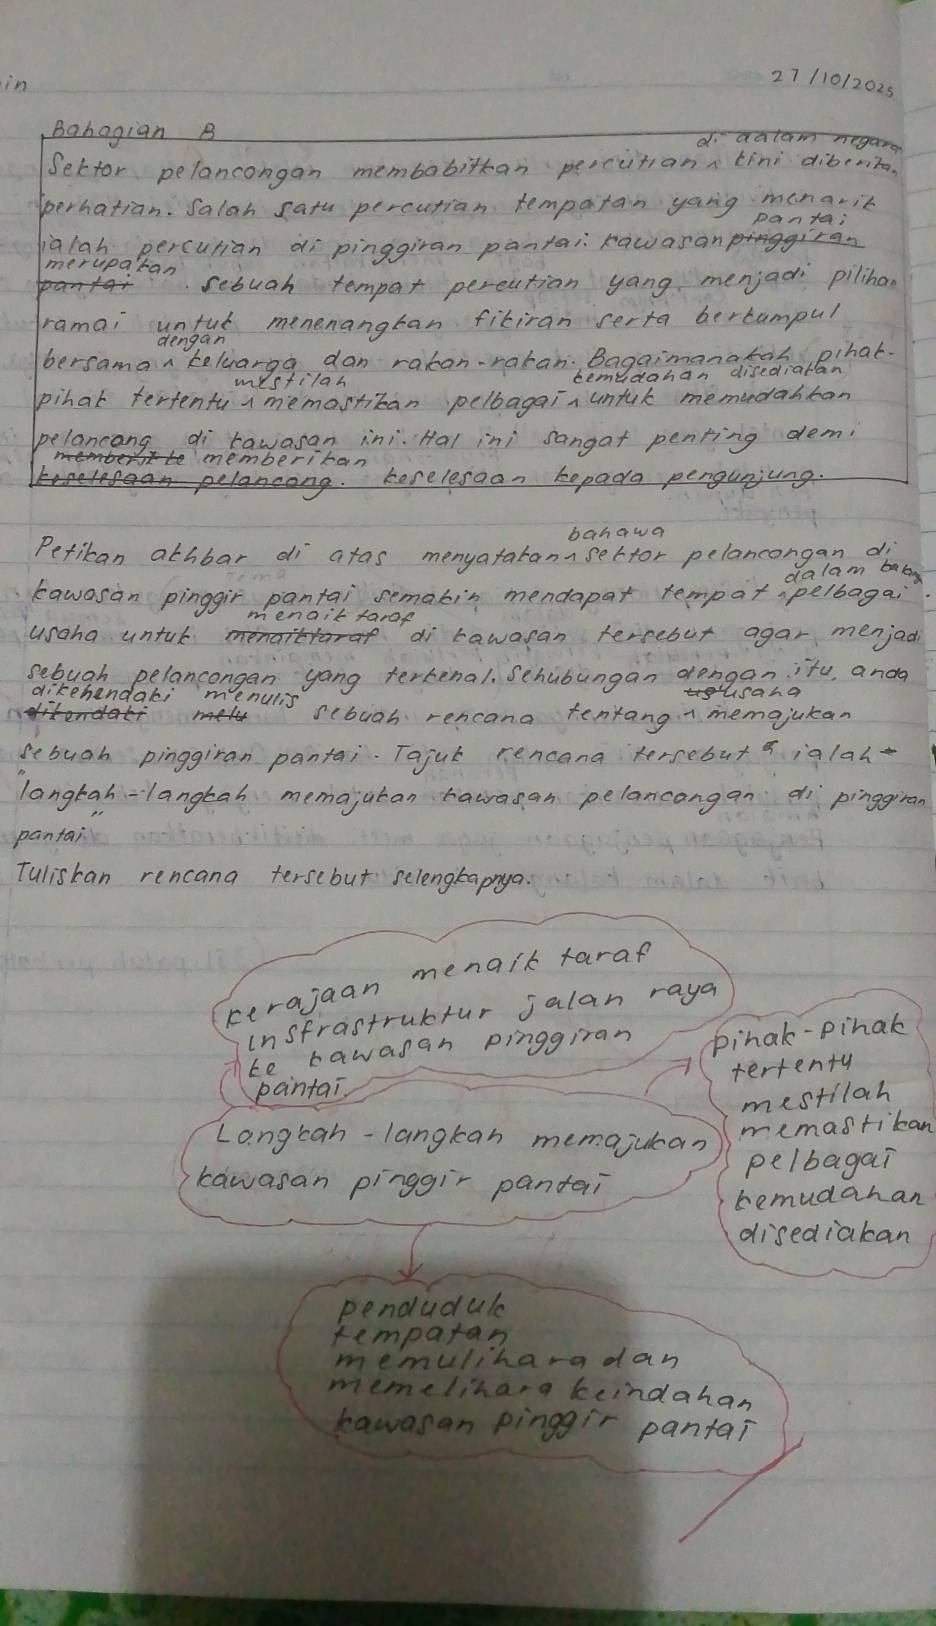 in
27/10/2025
Bahagian B
di dalam negara
Sektor pelancongan membabitkan percutian ^ kini diberikan
perhatian. Salah satu percutian tempatan yang menarik
pantai
ialah percutian di pinggiran pantai. Kawasan pinggiran
merupakan
pantai sebuah tempat percutian yang menjadi pilihan
ramai untuk menenangkan fikiran serta berkumpul
dengan
bersama ^ keluarga dan rakan-rakan. Bagaimanakah pihak-
mestilah kemudahan disediakan
pihak tertentu ^ memastikan pelbagai ^ untuk memudahkan
pelancong di kawasan ini. Hal ini sangat penting demi
memberikan
keselesaan pelancong. keselesaan kepada pengunjung.
bahawa
Petikan akhbar di atas menyatakan ^ sektor pelancongan di
dalam
kawasan pinggir pantai semakin mendapat tempat ^ pelbagai
menaik taraf
usaha untuk menaiktaraf di kawasan tersebut agar menjadi
sebuah pelancongan yang terkenal. Sehubungan dengan itu, anda
dikehendaki menulis usaha
dikendaki melu sebuah rencana tentang ^ memajukan
sebuah pinggiran pantai. Tajuk rencana tersebut ialah
"langkah-langkah memajukan kawasan pelancongan di pinggiran
pantai"
Tuliskan rencana tersebut selengkapnya.
kerajaan menaik taraf
insfrastruktur jalan raya
ke kawasan pinggiran
pantai.
pihak-pihak
tertentu
mestilah
memastikan
pelbagai
kemudahan
disediakan
Langkah-langkah memajukan
kawasan pinggir pantai
penduduk
tempatan
memulihara dan
memelihara keindahan
kawasan pinggir pantai